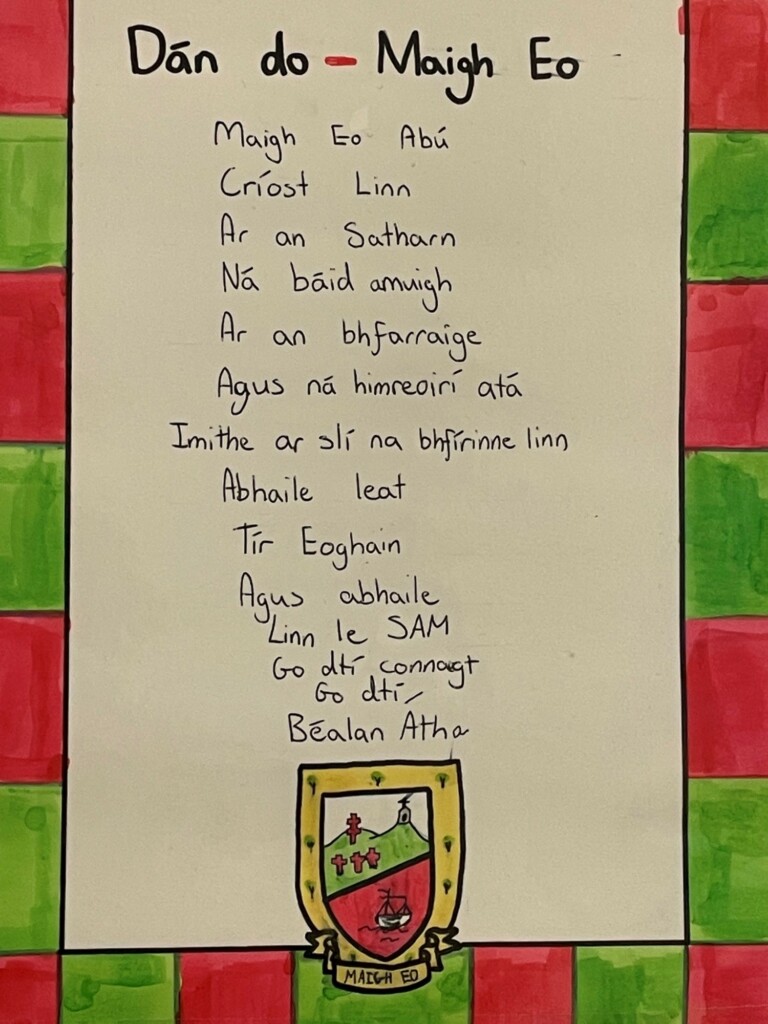 Dán do - Maigh Eo
Maigh Eo Abú
Críost Linn
Ar an Satharn
Ná báid amuigh
Ar an bhfarraige
Agus ná himreoirí atá
Imithe ar slí na bhfírinne linn
Abhaile leat
Tír Eoghain
Agus abhaile
Linn le SAM
Go dtí connagt
Go dtí
Béalan Atha
MAIGH EO